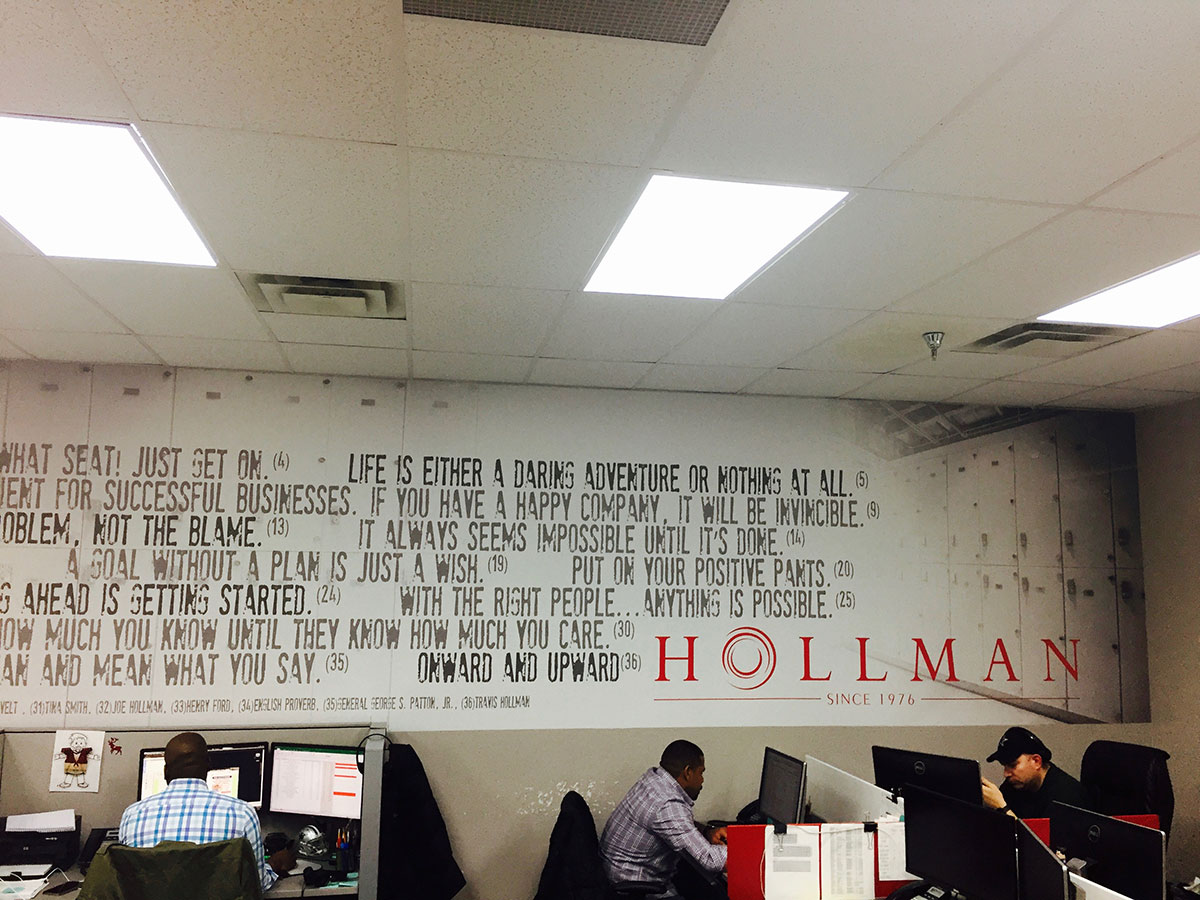 WHAT SEAT! JUST GET ON. (4) LIFE IS EITHER A DARING ADVENTURE OR NOTHING AT ALL. (5)
IENT FOR SUCCESSFUL BUSINESSES. IF YOU HAVE A HAPPY COMPANY, IT WILL BE INVINCIBLE. (9)
OBLEM, NOT THE BLAME. (13) IT ALWAYS SEEMS IMPOSSIBLE UNTIL IT'S DONE. (14)
A GOAL WITHOUT A PLAN IS JUST A WISH. (19) PUT ON YOUR POSITIVE PANTS. (20)
G AHEAD IS GETTING STARTED. (24) WITH THE RIGHT PEOPLE...ANYTHING IS POSSIBLE. (25)
HOW MUCH YOU KNOW UNTIL THEY KNOW HOW MUCH YOU CARE. (30)
AN AND MEAN WHAT YOU SAY. (35) ONWARD AND UPWARD (36)
HOLLMAN
SINCE 1976
VELT , (31)TINA SMITH, (32)JOE HOLLMAN, (33)HENRY FORD, (34)ENGLISH PROVERB, (35)GENERAL GEORGE S. PATTON, JR., (36)TRAVIS HOLLMAN
DELL